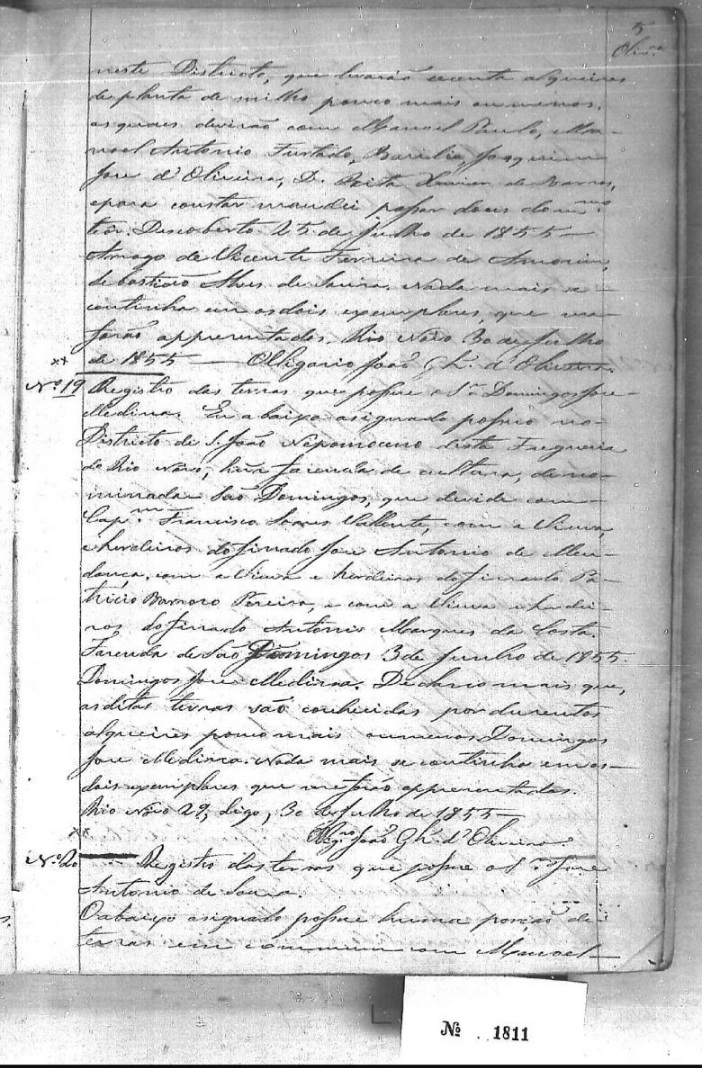 5
Olivra
neste Districto, que levarão secenta alqueires
de planta de milho pouco mais ou menos,
as quaes devisão com Manoel Paulo, Ma-
noel Antonio Furtado, Joaquim
Jose d'Oliveira, D. Rita de Barros,
e para constar mandei passar dous do mmo
teor. Descoberto 25 de Julho de 1855 —
Arrogo de Vicente Ferreira de Amorim,
Sebastião Alves de . Nada mais se
continha em os dois exemplares, que me
forão appresentados. Rio Novo 30 de Julho
de 1855 — O Vigario João d'Oliveira.
No 19 Registro das terras que possue o Sr. Domingos Jose
Medina. Eu abaixo asignado possuo no
Districto de S. João Nepomoceno desta Freguesia
do Rio Novo, hua fazenda de cultura, deno-
minada São Domingos, que devide com o
Capm. Francisco Soares Vallente, com a Viuva,
e herdeiros do finado Jose Antonio de Men-
donça, com a Viuva e herdeiros do finado Pa-
tricio Barroso Pereira, e com a Viuva e herdei-
ros do finado Antonio Marques da Costa.
Fazenda de São Domingos 3 de Junho de 1855.
Domingos Jose Medina. Declaro mais que,
as ditas terras são conhecidas por duzentos
alqueires pouco mais ou menos Domingos
Jose Medina. Nada mais se continha em os
dois exemplares que me forão appresentados.
Rio Novo 29, digo, 30 de Julho de 1855 —
João d'Oliveira.
No 20 Registro das terras que possue o Sr. Jose
Antonio de Souza.
O abaixo asignado possue huma porção de
terras em commum com Manoel —
No 1811